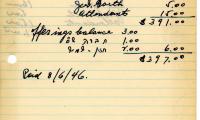 Geo. Booth 5.00
Attendant 15.00
$391.00
offerings balance 3.00
1.00
2.00 6.00
$397.00
Paid 8/6/46.